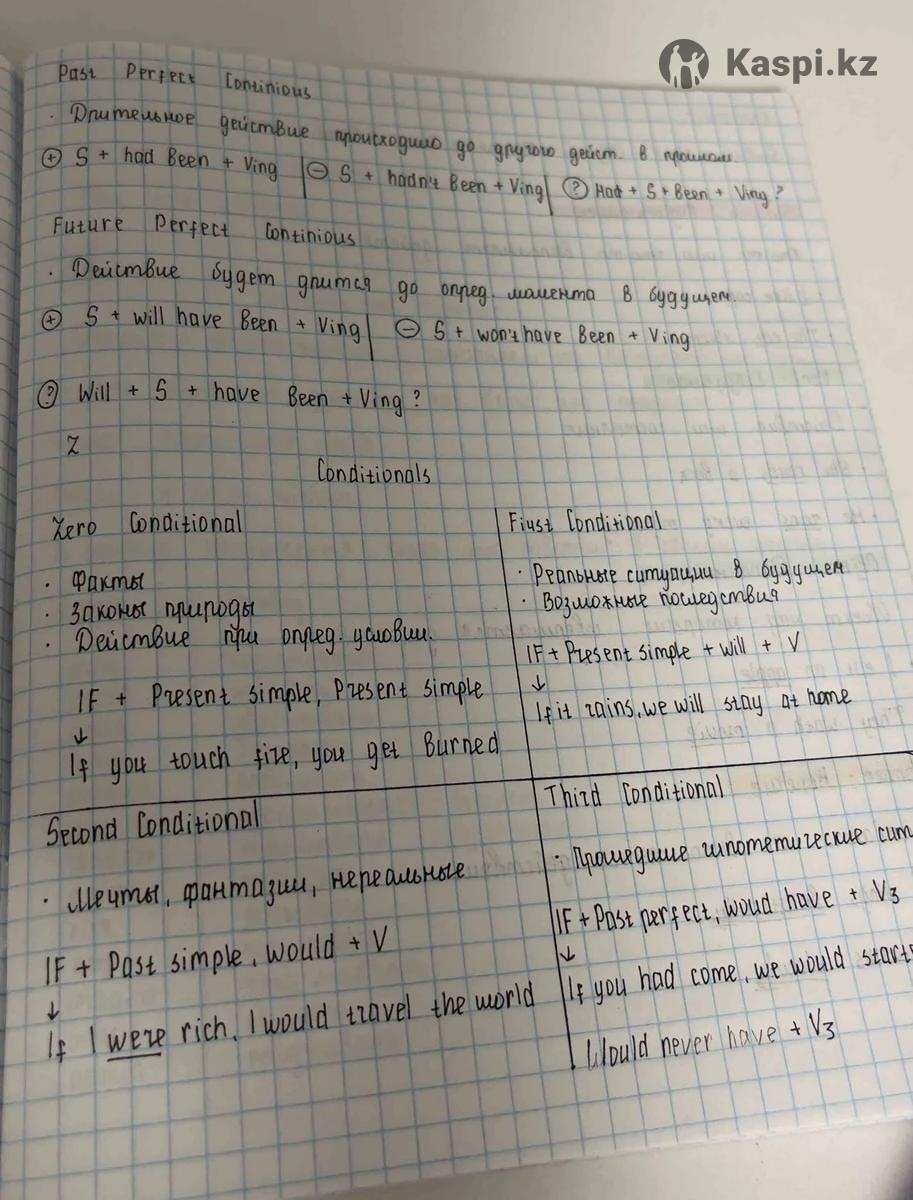 Kaspi.kz
Past Perfect Continious
· Длительное действие происходило до другого дейст. в прошлом.
⊕ S + had Been + Ving | ⊖ S + hadn't Been + Ving | ? Had + S + Been + Ving ?
Future Perfect Continious
· Действие будет длится до опред. момента в будущем.
⊕ S + will have Been + Ving | ⊖ S + won't have Been + Ving
? Will + S + have Been + Ving ?
Z
Conditionals
Zero Conditional
· Факты
· Законы природы
· Действие при опред. условии.
IF + Present simple, Present simple
↓
If you touch fire, you get Burned
First Conditional
· Реальные ситуации в будущем
· Возможные последствия
IF + Present simple + will + V
↓
If it rains, we will stay at home
Second Conditional
· Мечты, фантазии, нереальные
IF + Past simple, would + V
↓
If I were rich, I would travel the world
Third Conditional
· Прошедшие гипотетические сит
IF + Past perfect, woud have + V3
↓
If you had come, we would
Would never have + V3